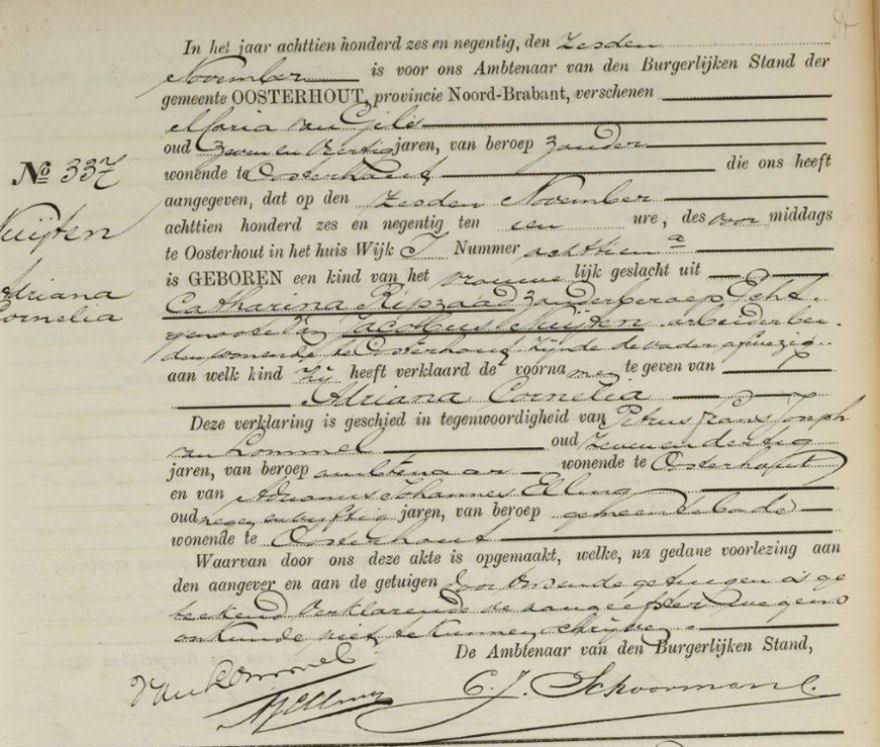 In het jaar achttien honderd zes en negentig, den zesden
November is voor ons Ambtenaar van den Burgerlijken Stand der
gemeente OOSTERHOUT, provincie Noord-Brabant, verschenen
Maria van Gils
oud zeven en veertig jaren, van beroep zonder
No 337
wonende te Oosterhout die ons heeft
aangegeven, dat op den zesden November
Kuijten
achttien honderd zes en negentig ten een ure, des voor middags
te Oosterhout in het huis Wijk I Nummer achttien a
is GEBOREN een kind van het vrouwe lijk geslacht uit
Adriana
Cornelia
Catharina Ripzaad zonder beroep, Echt
genoote van Jacobus Kuijten arbeider bei
den wonende te Oosterhout zijnde de vader afwezig
aan welk kind zij heeft verklaard de voorna men te geven van
Adriana Cornelia
Deze verklaring is geschied in tegenwoordigheid van Petrus Frans Joseph
van Lommel oud zeven en dertig
jaren, van beroep ambtenaar wonende te Oosterhout
en van Adrianus Johannes Elling
oud negen en vijftig jaren, van beroep gemeentebode
wonende te Oosterhout
Waarvan door ons deze akte is opgemaakt, welke, na gedane voorlezing aan
den aangever en aan de getuigen door ons en de getuigen is ge
teekend verklarende de aangeefster wegens
onkunde niet te kunnen schrijven
De Ambtenaar van den Burgerlijken Stand,
van Lommel
AJElling
C. J. Schoormans